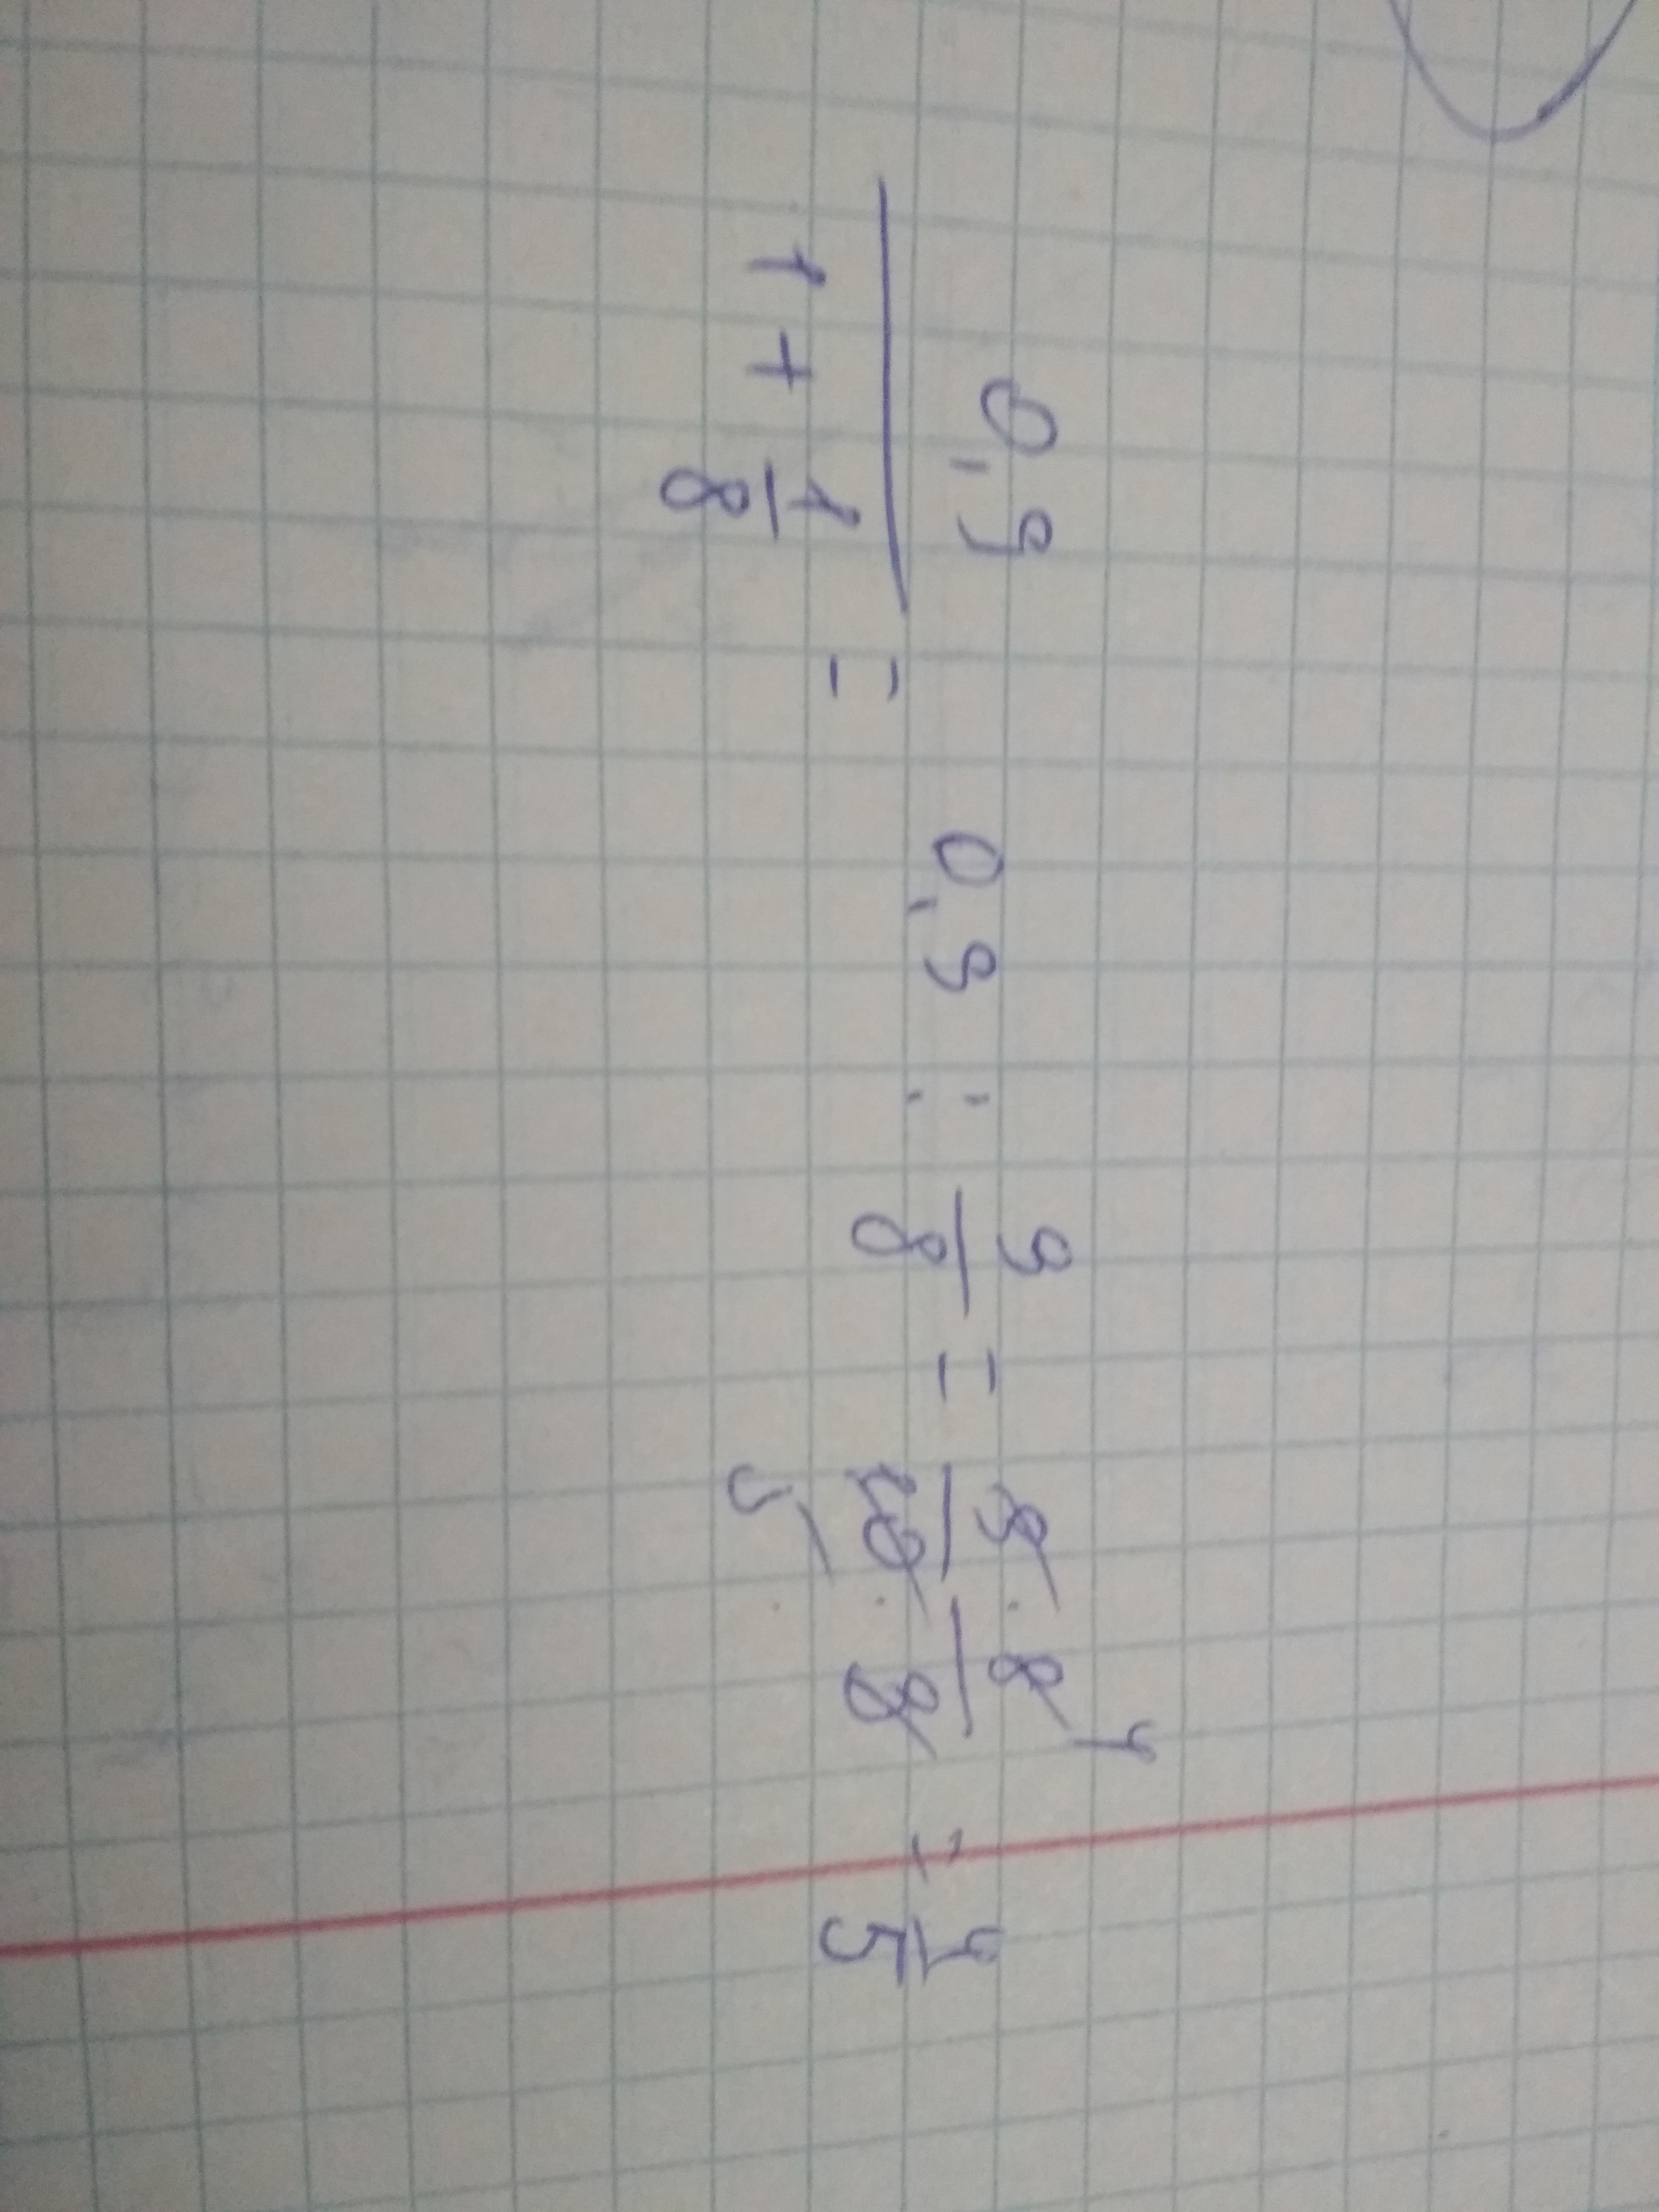 0,9 / (1 + 1/8) = 0,9 : 9/8 = 9/10 · 8/9 = 4/5
4
5